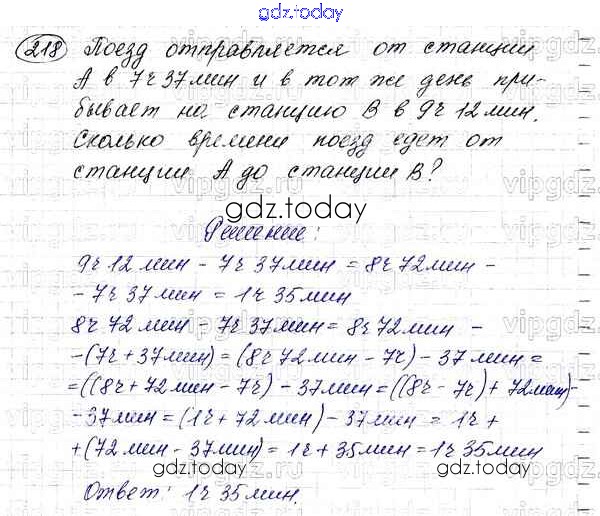 gdz.today
218 Поезд отправляется от станции
А в 7ч 37мин и в тот же день при-
бывает на станцию В в 9ч 12 мин.
Сколько времени поезд едет от
станции А до станции В?
gdz.today
Решение:
9ч 12 мин - 7ч 37мин = 8ч 72мин -
- 7ч 37 мин = 1ч 35мин
8ч 72 мин - 7ч 37мин = 8ч 72мин -
-(7ч + 37мин) = (8ч 72мин - 7ч) - 37мин =
=((8ч + 72мин - 7ч) - 37мин = ((8ч - 7ч) + 72мин)-
-37мин = (1ч + 72мин) - 37мин = 1ч +
+(72 мин - 37мин) = 1ч + 35мин = 1ч 35мин
gdz.today
Ответ: 1ч 35мин.